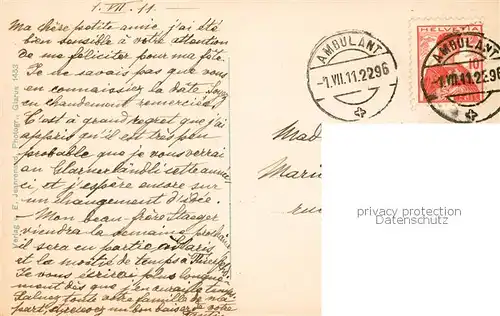 1. VII. 11.
Ma chère petite amie, j'ai été
bien sensible à votre attention
de me féliciter pour ma fête.
Je ne savais pas que vous
en connaissiez la date. Soyez
en chaudement remerciée!
C'est à grand regret que j'ai
appris qu'il est très peu
probable que je vous verrai
au Glarnerländli cette année
ci, et j'espère encore sur
un changement d'idée.
- Mon beau-frère
viendra la semaine prochaine
il sera en partie à Paris
et la moitié de temps à
Je vous écrirai plus longue
ment dès que j'en aurai le temps
Saluez toute votre famille de ma
part, et recevez un bon baiser de votre
Verlag E. Jeanrenaud, Photogr., Glarus 1453
AMBULANT
-1.VII.11.22 96
HELVETIA
10
AMBULANT
-1.VII.11.22 96
Mad
Marie
rue
property of